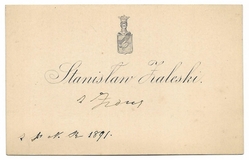 Stanisław Zaleski.
z żoną
1891.